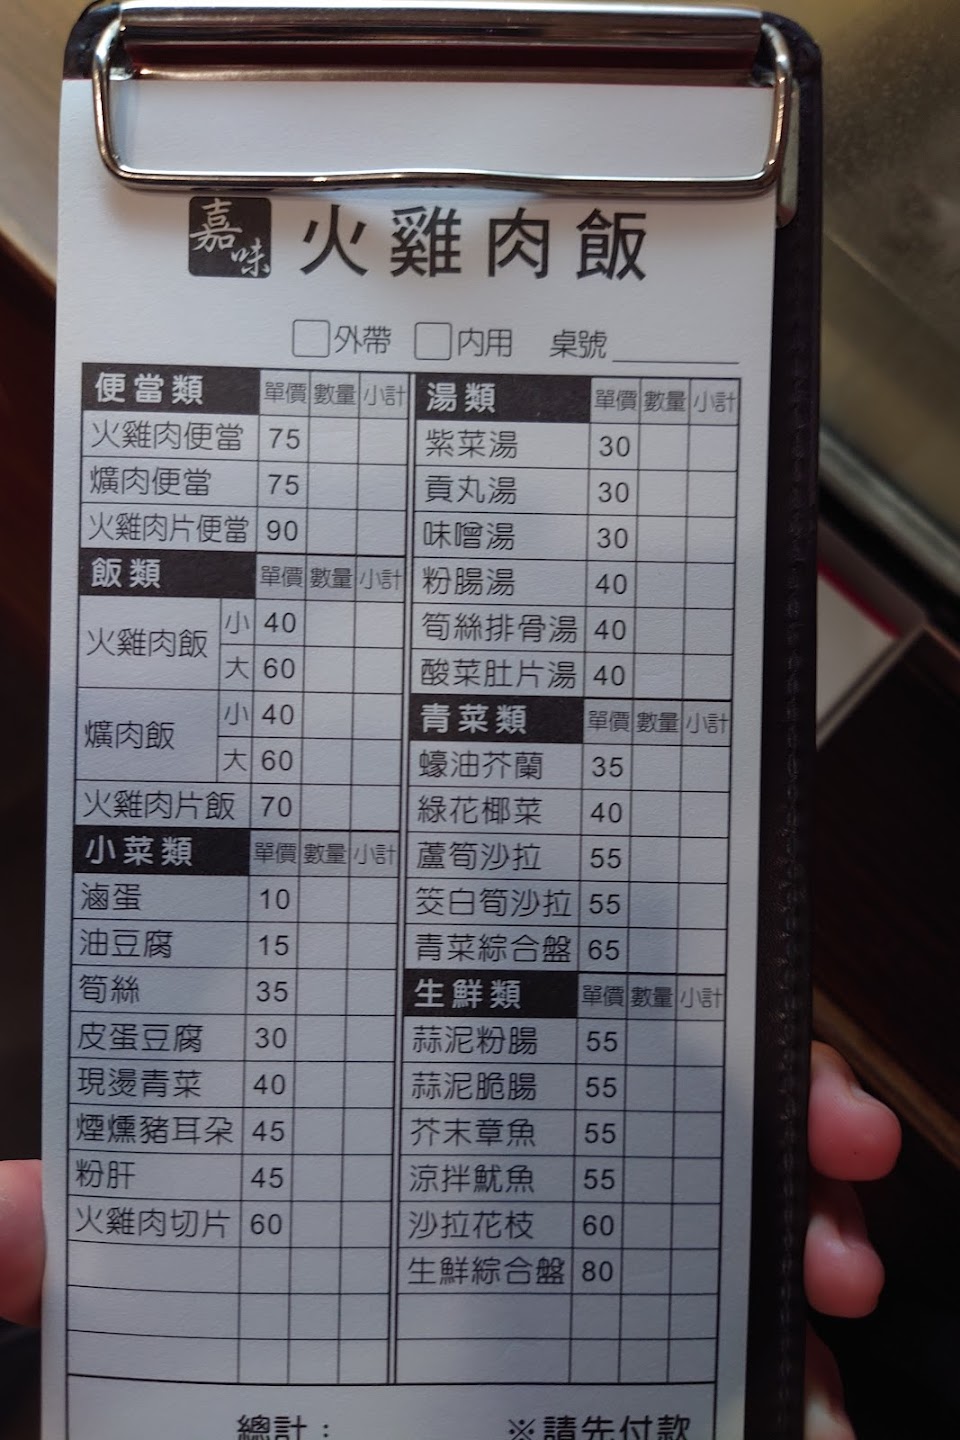 嘉味 火雞肉飯
外帶 內用 桌號
便當類 單價 數量 小計
火雞肉便當 75
爌肉便當 75
火雞肉片便當 90
飯類 單價 數量 小計
火雞肉飯 小 40
大 60
爌肉飯 小 40
大 60
火雞肉片飯 70
小菜類 單價 數量 小計
滷蛋 10
油豆腐 15
筍絲 35
皮蛋豆腐 30
現燙青菜 40
煙燻豬耳朵 45
粉肝 45
火雞肉切片 60
湯類 單價 數量 小計
紫菜湯 30
貢丸湯 30
味噌湯 30
粉腸湯 40
筍絲排骨湯 40
酸菜肚片湯 40
青菜類 單價 數量 小計
蠔油芥蘭 35
綠花椰菜 40
蘆筍沙拉 55
筊白筍沙拉 55
青菜綜合盤 65
生鮮類 單價 數量 小計
蒜泥粉腸 55
蒜泥脆腸 55
芥末章魚 55
涼拌魷魚 55
沙拉花枝 60
生鮮綜合盤 80
總計： ※請先付款